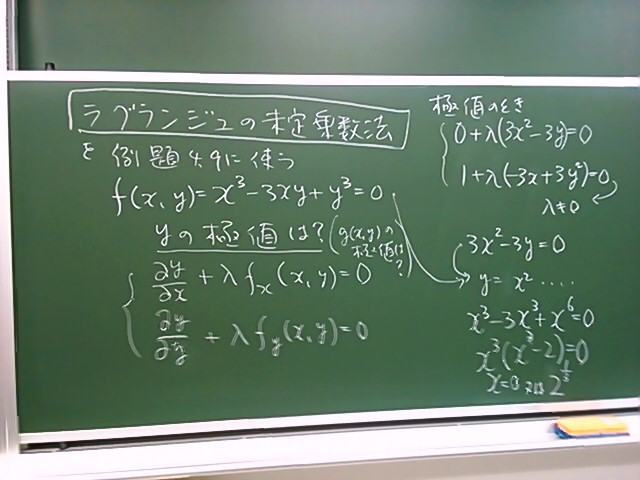 ラグランジュの未定乗数法
を 例題 4.9に 使う
f(x, y) = x³ - 3xy + y³ = 0
yの極値は? (g(x,y)の極値は?)
∂y/∂x + λ fx(x, y) = 0
∂y/∂y + λ fy(x, y) = 0
極値のとき
0 + λ(3x² - 3y) = 0
1 + λ(-3x + 3y²) = 0
λ ≠ 0
3x² - 3y = 0
y = x² ....
x³ - 3x³ + x⁶ = 0
x³(x³ - 2) = 0
x = 0 又は 2^(1/3)